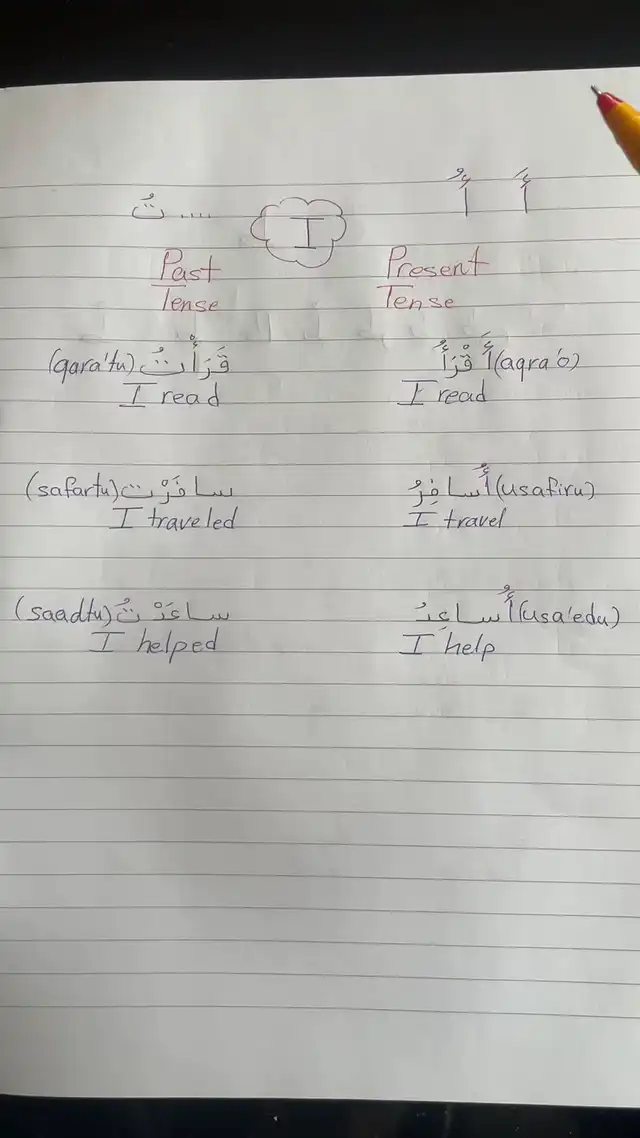 تُ .... I أُ أَ
Past Present
Tense Tense
(qara'tu) قَرَأْتُ أَقْرَأُ (aqra'o)
I read I read
(safartu) سافَرْت أُسافِرُ (usafiru)
I traveled I travel
(saadtu) ساعَدْتُ أُساعِدُ (usa'edu)
I helped I help